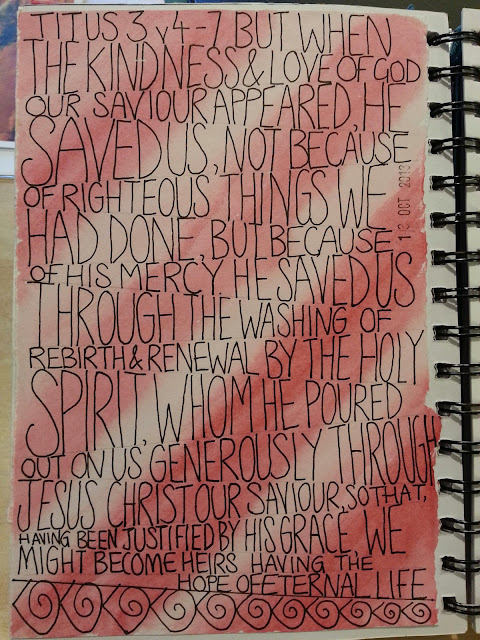 TITUS 3 v4-7 BUT WHEN
THE KINDNESS & LOVE OF GOD
OUR SAVIOUR APPEARED, HE
SAVED US, NOT BECAUSE
OF RIGHTEOUS THINGS WE
HAD DONE, BUT BECAUSE
OF HIS MERCY. HE SAVED US
THROUGH THE WASHING OF
REBIRTH & RENEWAL BY THE HOLY
SPIRIT, WHOM HE POURED
OUT ON US GENEROUSLY THROUGH
JESUS CHRIST OUR SAVIOUR, SO THAT,
HAVING BEEN JUSTIFIED BY HIS GRACE, WE
MIGHT BECOME HEIRS HAVING THE
HOPE OF ETERNAL LIFE
OCT 2013